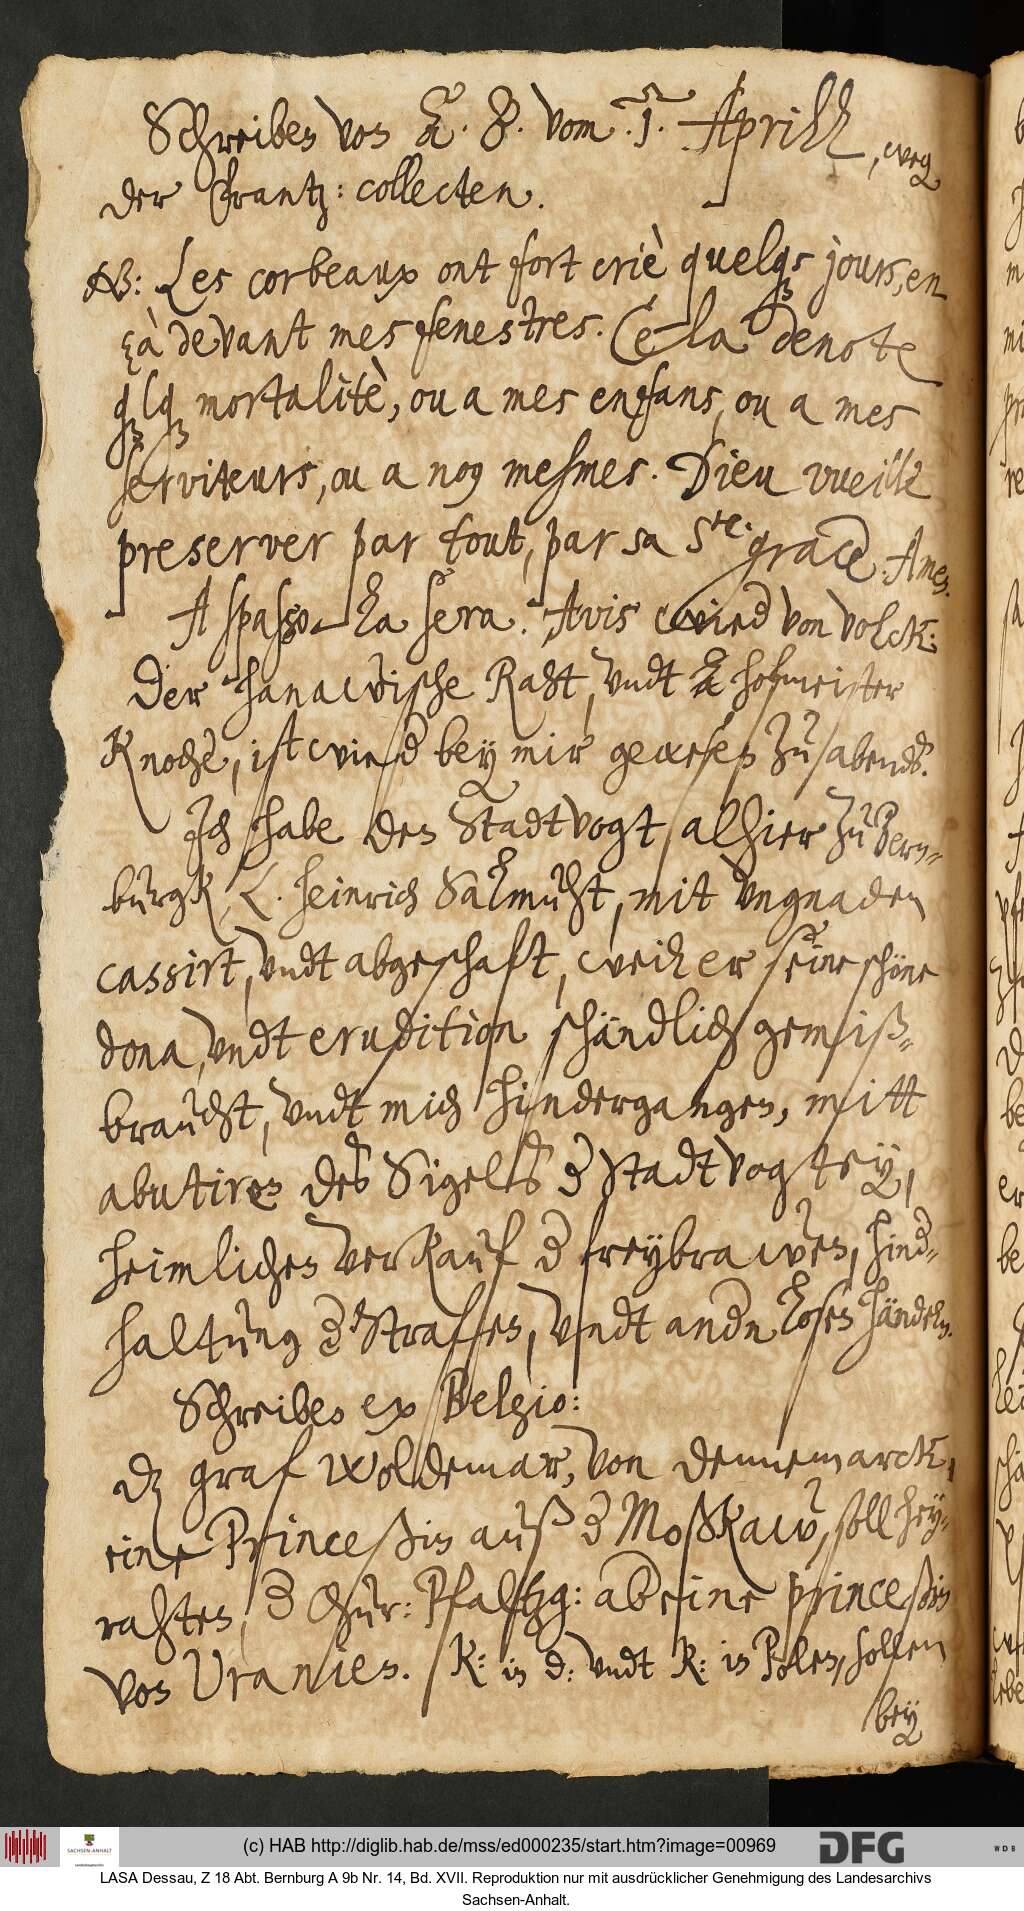 Schreiben von A. B. vom .1. Aprill, weg.
der Frantz: collecten.
NB: Les corbeaux ont fort criè quelqs jours, en
çà devant mes fenestres. Cela denote
qlq mortalitè, ou a mes enfans, ou a mes
serviteurs, ou a nos mesmes. Dieu vueille
preserver par tout, par sa Ste. grace. Amen.
A spasso la sera. Avis wied von Volck:
Der hanawische Raht, vndt hofmeister
Knoche, ist wied bey mir gewesen zu abends.
Jch habe den Stadtvogt alhier zu Bern-
burgk, L. Heinrich Salmuht, mit vngnaden
cassirt, vndt abgeschaft, weil er seine schöne
dona, vndt erudition schändlich gemiß-
braucht, vndt mich hindergangen, mitt
abutiren des Sigels d Stadtvogtey,
heimlichen verkauf d freybrawen, hind-
haltung d Straffen, vndt andn losen händeln.
Schreiben ex Belgio:
dz graf Woldemar, von Dennemarck,
eine Princeßin auß d Moßkaw, soll hey-
rahten, d Chur: Pfaltzg: ab eine princeßin
von Uranien. K: in d: vndt K: in Polen, sollen
bey
(c) HAB http://diglib.hab.de/mss/ed000235/start.htm?image=00969
SACHSEN-ANHALT
DFG
WDB
LASA Dessau, Z 18 Abt. Bernburg A 9b Nr. 14, Bd. XVII. Reproduktion nur mit ausdrücklicher Genehmigung des Landesarchivs
Sachsen-Anhalt.